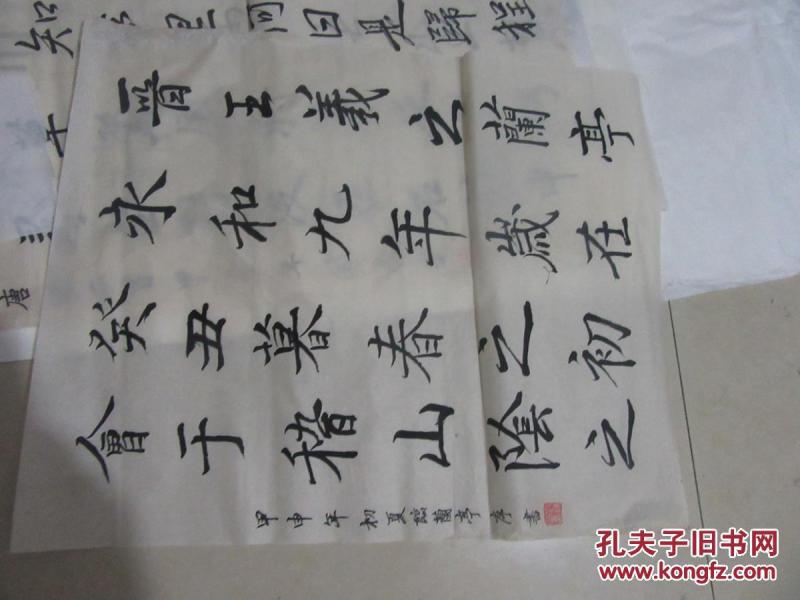 是歸程
晉王羲之蘭亭
永和九年歲在
癸丑暮春之初
會于稽山陰之
甲申年初夏臨蘭亭序書
唐
孔夫子旧书网
www.kongfz.com